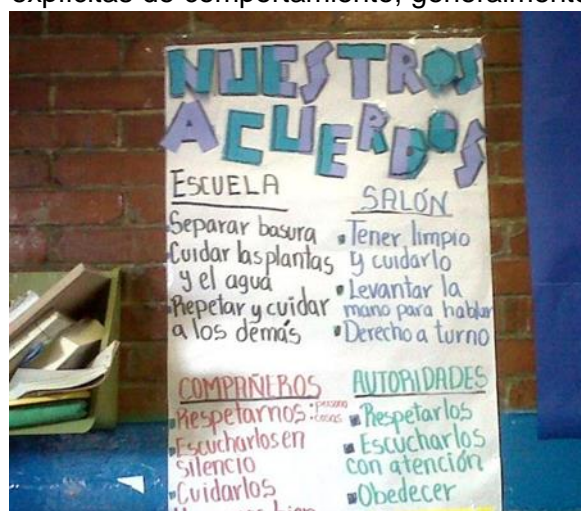 explícitas de comportamiento, generalmente
NUESTROS
ACUERDOS
ESCUELA
Separar basura
Cuidar las plantas
y el agua
Repetar y cuidar
a los demás
SALÓN
Tener limpio
y cuidarlo
Levantar la
mano para hablar
Derecho a turno
COMPAÑEROS
Respetarnos: persona
cosas
Escucharlos en
silencio
Cuidarlos
AUTORIDADES
Respetarlos
Escucharlos
con atención
Obedecer